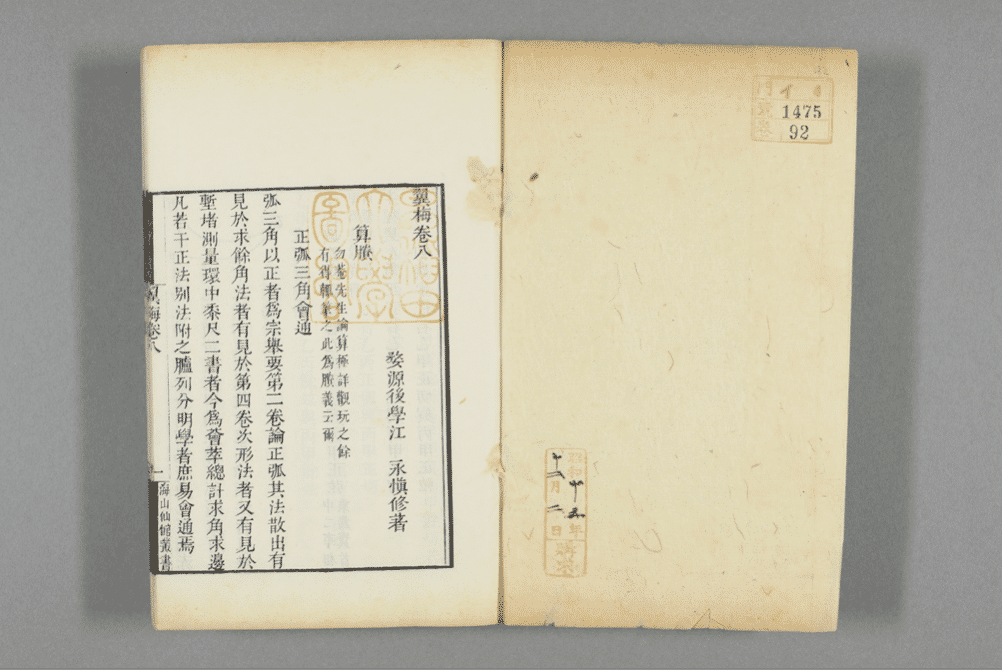 1475
92
昭和十五年
十二月二日
購求
翼梅卷八
婺源後學江 永愼修著
算賸
勿菴先生論算極詳觀玩之餘
有得輒筆之此爲賸義云爾
正弧三角會通
弧三角以正者爲宗舉要第二卷論正弧其法散出有
見於求餘角法者有見於第四卷次形法者又有見於
塹堵測量環中黍尺二書者今爲薈萃總計求角求邊
凡若干正法別法附之臚列分明學者庶易會通焉
翼梅卷八
一
海山仙館叢書